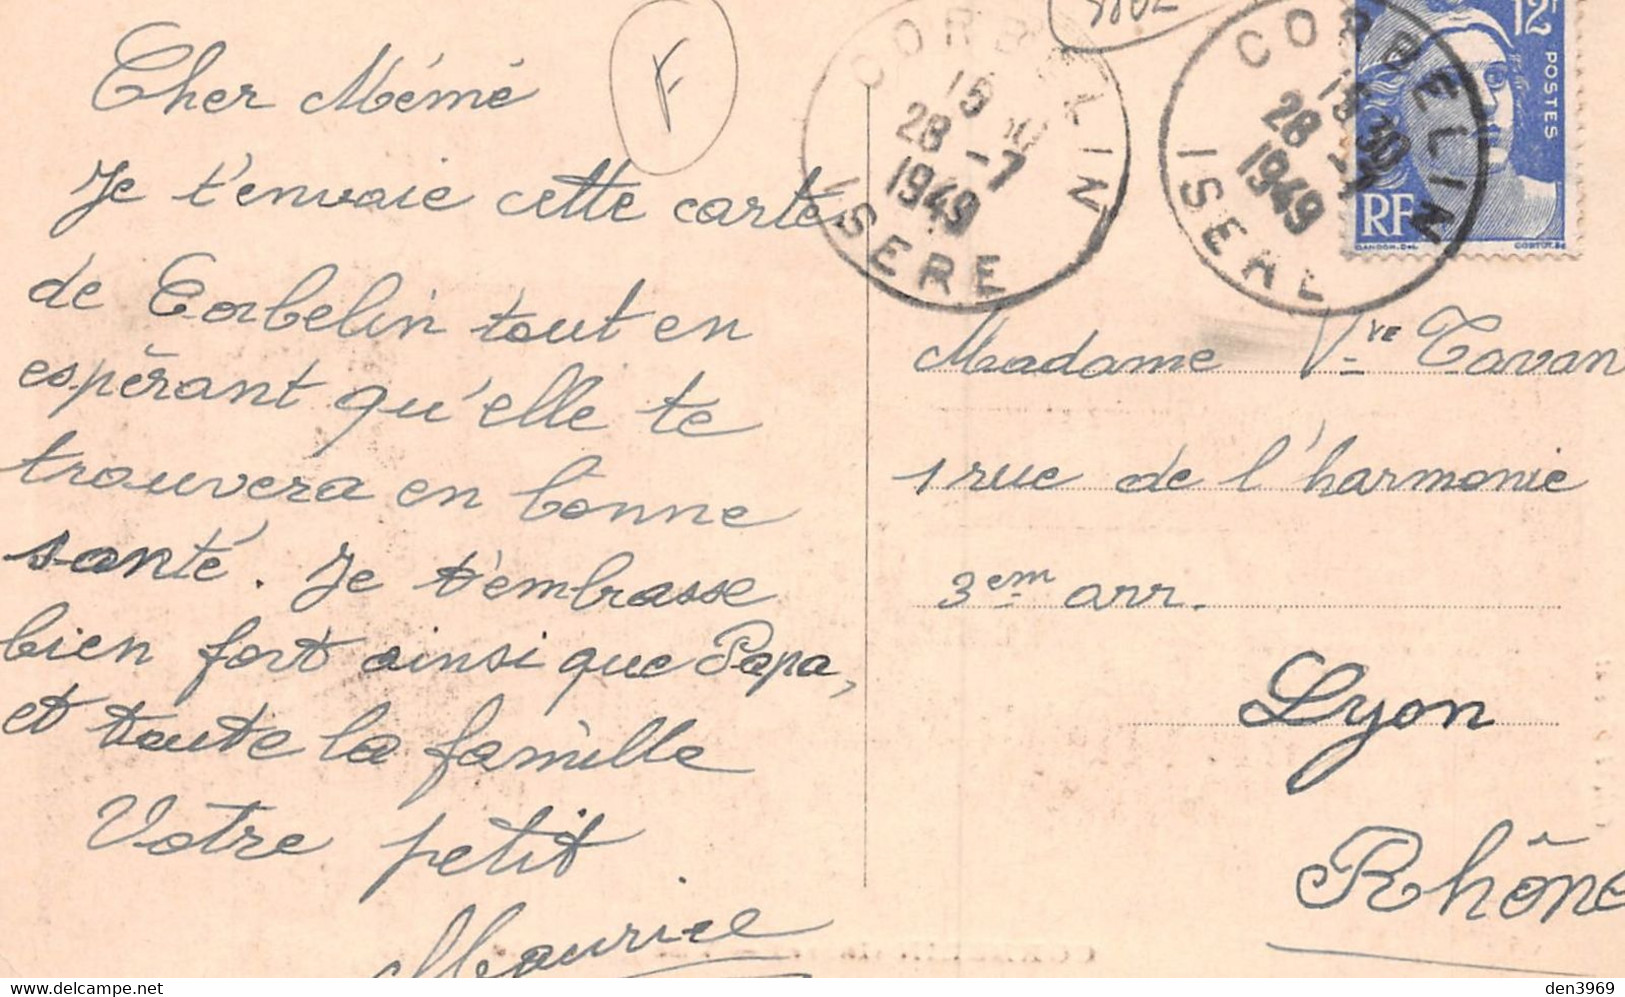 Cher Mémé
Je t'envoie cette carte
de Corbelin tout en
espérant qu'elle te
trouvera en bonne
santé. Je t'embrasse
bien fort ainsi que Papa,
et toute la famille
Votre petit
Maurice
F
CORBELIN
15
28-7
1949
ISERE
CORBELIN
15 30
28-7
1949
ISERE
12F
POSTES
RF
Madame Vve Tavan
1 rue de l'harmonie
3em arr.
Lyon
Rhône
delcampe.net
den3969